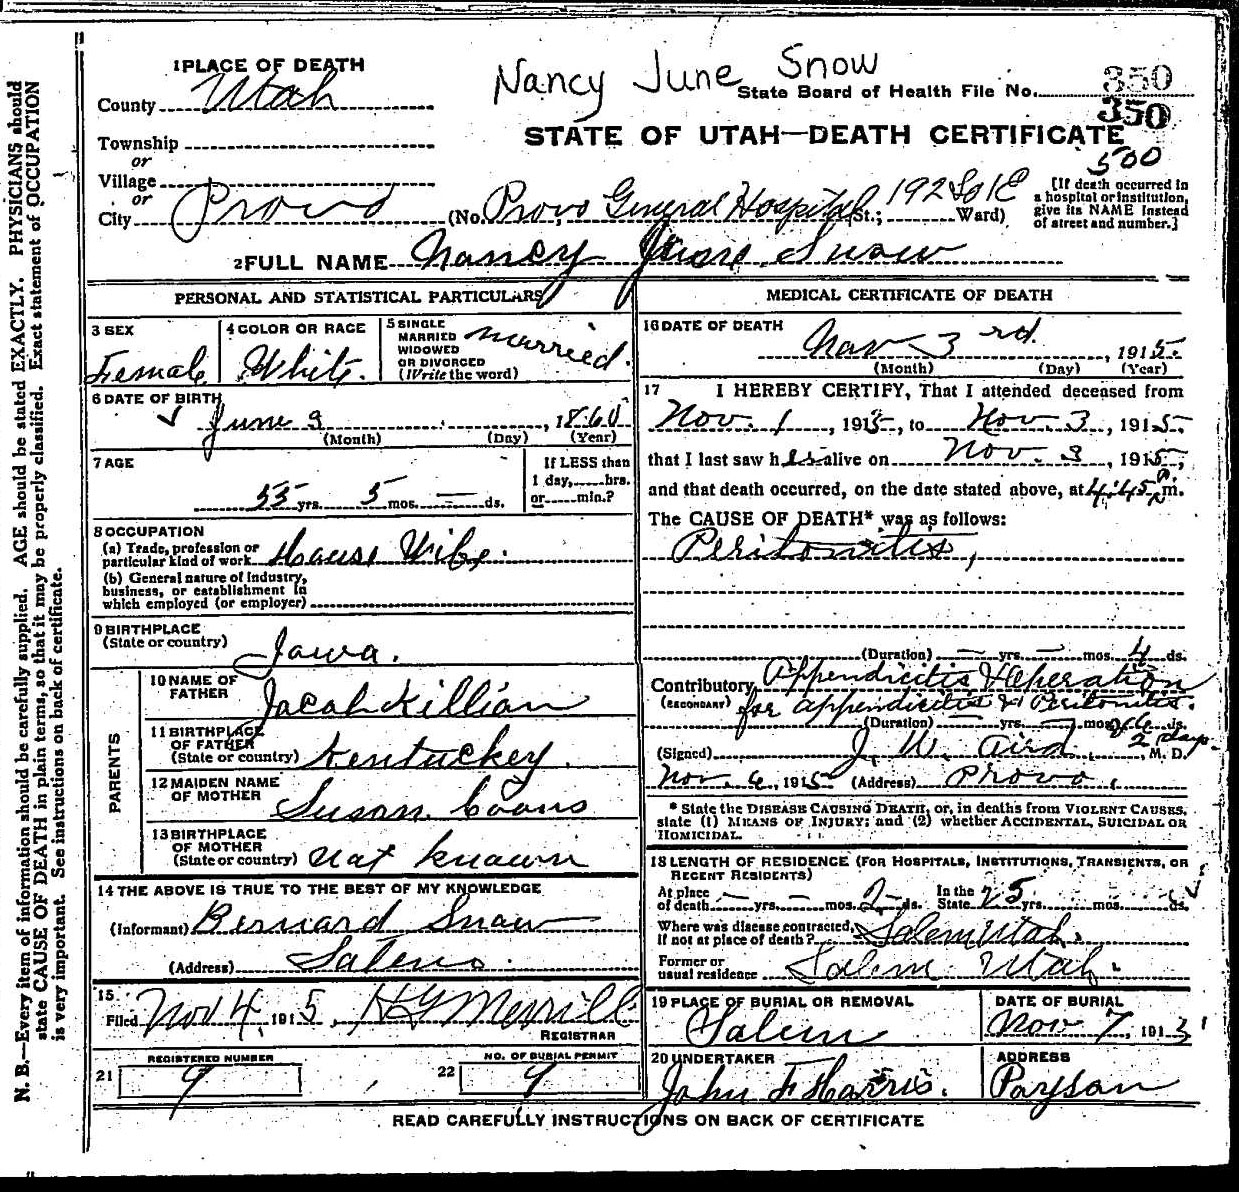 N. B.—Every item of information should be carefully supplied. AGE should be stated EXACTLY. PHYSICIANS should
state CAUSE OF DEATH in plain terms, so that it may be properly classified. Exact statement of OCCUPATION
is very important. See instructions on back of certificate.
1 PLACE OF DEATH
Nancy June Snow
350
County Utah
State Board of Health File No. 350
STATE OF UTAH—DEATH CERTIFICATE
Township
or
Village
or
City Provo (No. Provo General Hospital St.; 192 So 1 E Ward)
500
[If death occurred in
a hospital or institution,
give its NAME instead
of street and number.]
2 FULL NAME Nancy June Snow
PERSONAL AND STATISTICAL PARTICULARS
3 SEX
Female
4 COLOR OR RACE
White.
5 SINGLE
MARRIED
WIDOWED
OR DIVORCED
(Write the word)
married.
6 DATE OF BIRTH
June 3, 1860
(Month) (Day) (Year)
7 AGE
55 yrs. 5 mos. — ds.
If LESS than
1 day, hrs.
or min.?
8 OCCUPATION
(a) Trade, profession or
particular kind of work House Wife.
(b) General nature of industry,
business, or establishment in
which employed (or employer)
9 BIRTHPLACE
(State or country)
Iowa.
PARENTS
10 NAME OF
FATHER Jacob Killian
11 BIRTHPLACE
OF FATHER
(State or country) Kentuckey.
12 MAIDEN NAME
OF MOTHER Susan Coons
13 BIRTHPLACE
OF MOTHER
(State or country) not known
14 THE ABOVE IS TRUE TO THE BEST OF MY KNOWLEDGE
(Informant) Bernard Snow
(Address) Salem.
15
Filed Nov 4, 1915, H G Merrill
REGISTRAR
REGISTERED NUMBER
21 9
NO. OF BURIAL PERMIT
22 9
MEDICAL CERTIFICATE OF DEATH
16 DATE OF DEATH
Nov 3rd, 1915.
(Month) (Day) (Year)
17 I HEREBY CERTIFY, That I attended deceased from
Nov. 1, 1915, to Nov. 3, 1915.
that I last saw her alive on Nov. 3, 1915,
and that death occurred, on the date stated above, at 4:45 P m.
The CAUSE OF DEATH* was as follows:
Peritonitis,
(Duration) — yrs. — mos. 4 ds.
Contributory Appendicitis & Operation
(SECONDARY) for appendicitis & Peritonitis.
(Duration) — yrs. — mos. ds.
2 days.
(Signed) J. W. Aird, M. D.
Nov. 4, 1915 (Address) Provo,
* State the DISEASE CAUSING DEATH, or, in deaths from VIOLENT CAUSES,
state (1) MEANS OF INJURY; and (2) whether ACCIDENTAL, SUICIDAL OR
HOMICIDAL.
18 LENGTH OF RESIDENCE (FOR HOSPITALS, INSTITUTIONS, TRANSIENTS, OR
RECENT RESIDENTS)
At place
of death — yrs. — mos. 2 ds.
In the
State 25 yrs. mos. ds.
Where was disease contracted,
if not at place of death? Salem Utah.
Former or
usual residence Salem Utah.
19 PLACE OF BURIAL OR REMOVAL
Salem
DATE OF BURIAL
Nov 7, 1915
20 UNDERTAKER
John F Harris.
ADDRESS
Payson
READ CAREFULLY INSTRUCTIONS ON BACK OF CERTIFICATE